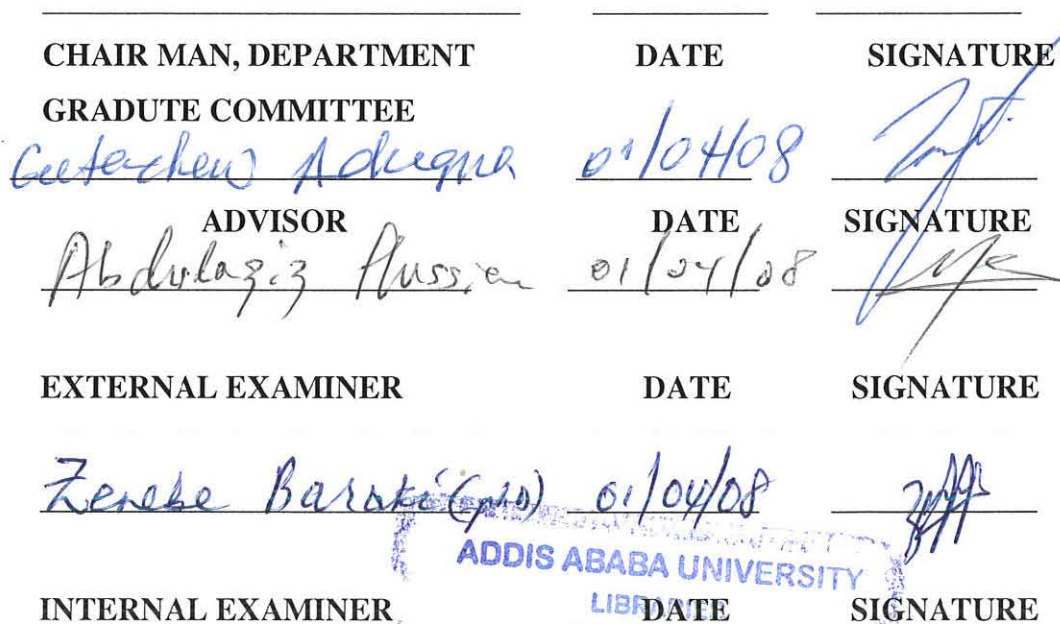 CHAIR MAN, DEPARTMENT DATE SIGNATURE
GRADUTE COMMITTEE
Getachew Adugna 01/04/08
ADVISOR DATE SIGNATURE
Abdulaziz Hussien 01/04/08
EXTERNAL EXAMINER DATE SIGNATURE
Zenebe Baraki (PhD) 01/04/08
ADDIS ABABA UNIVERSITY
LIBRARIES
INTERNAL EXAMINER DATE SIGNATURE